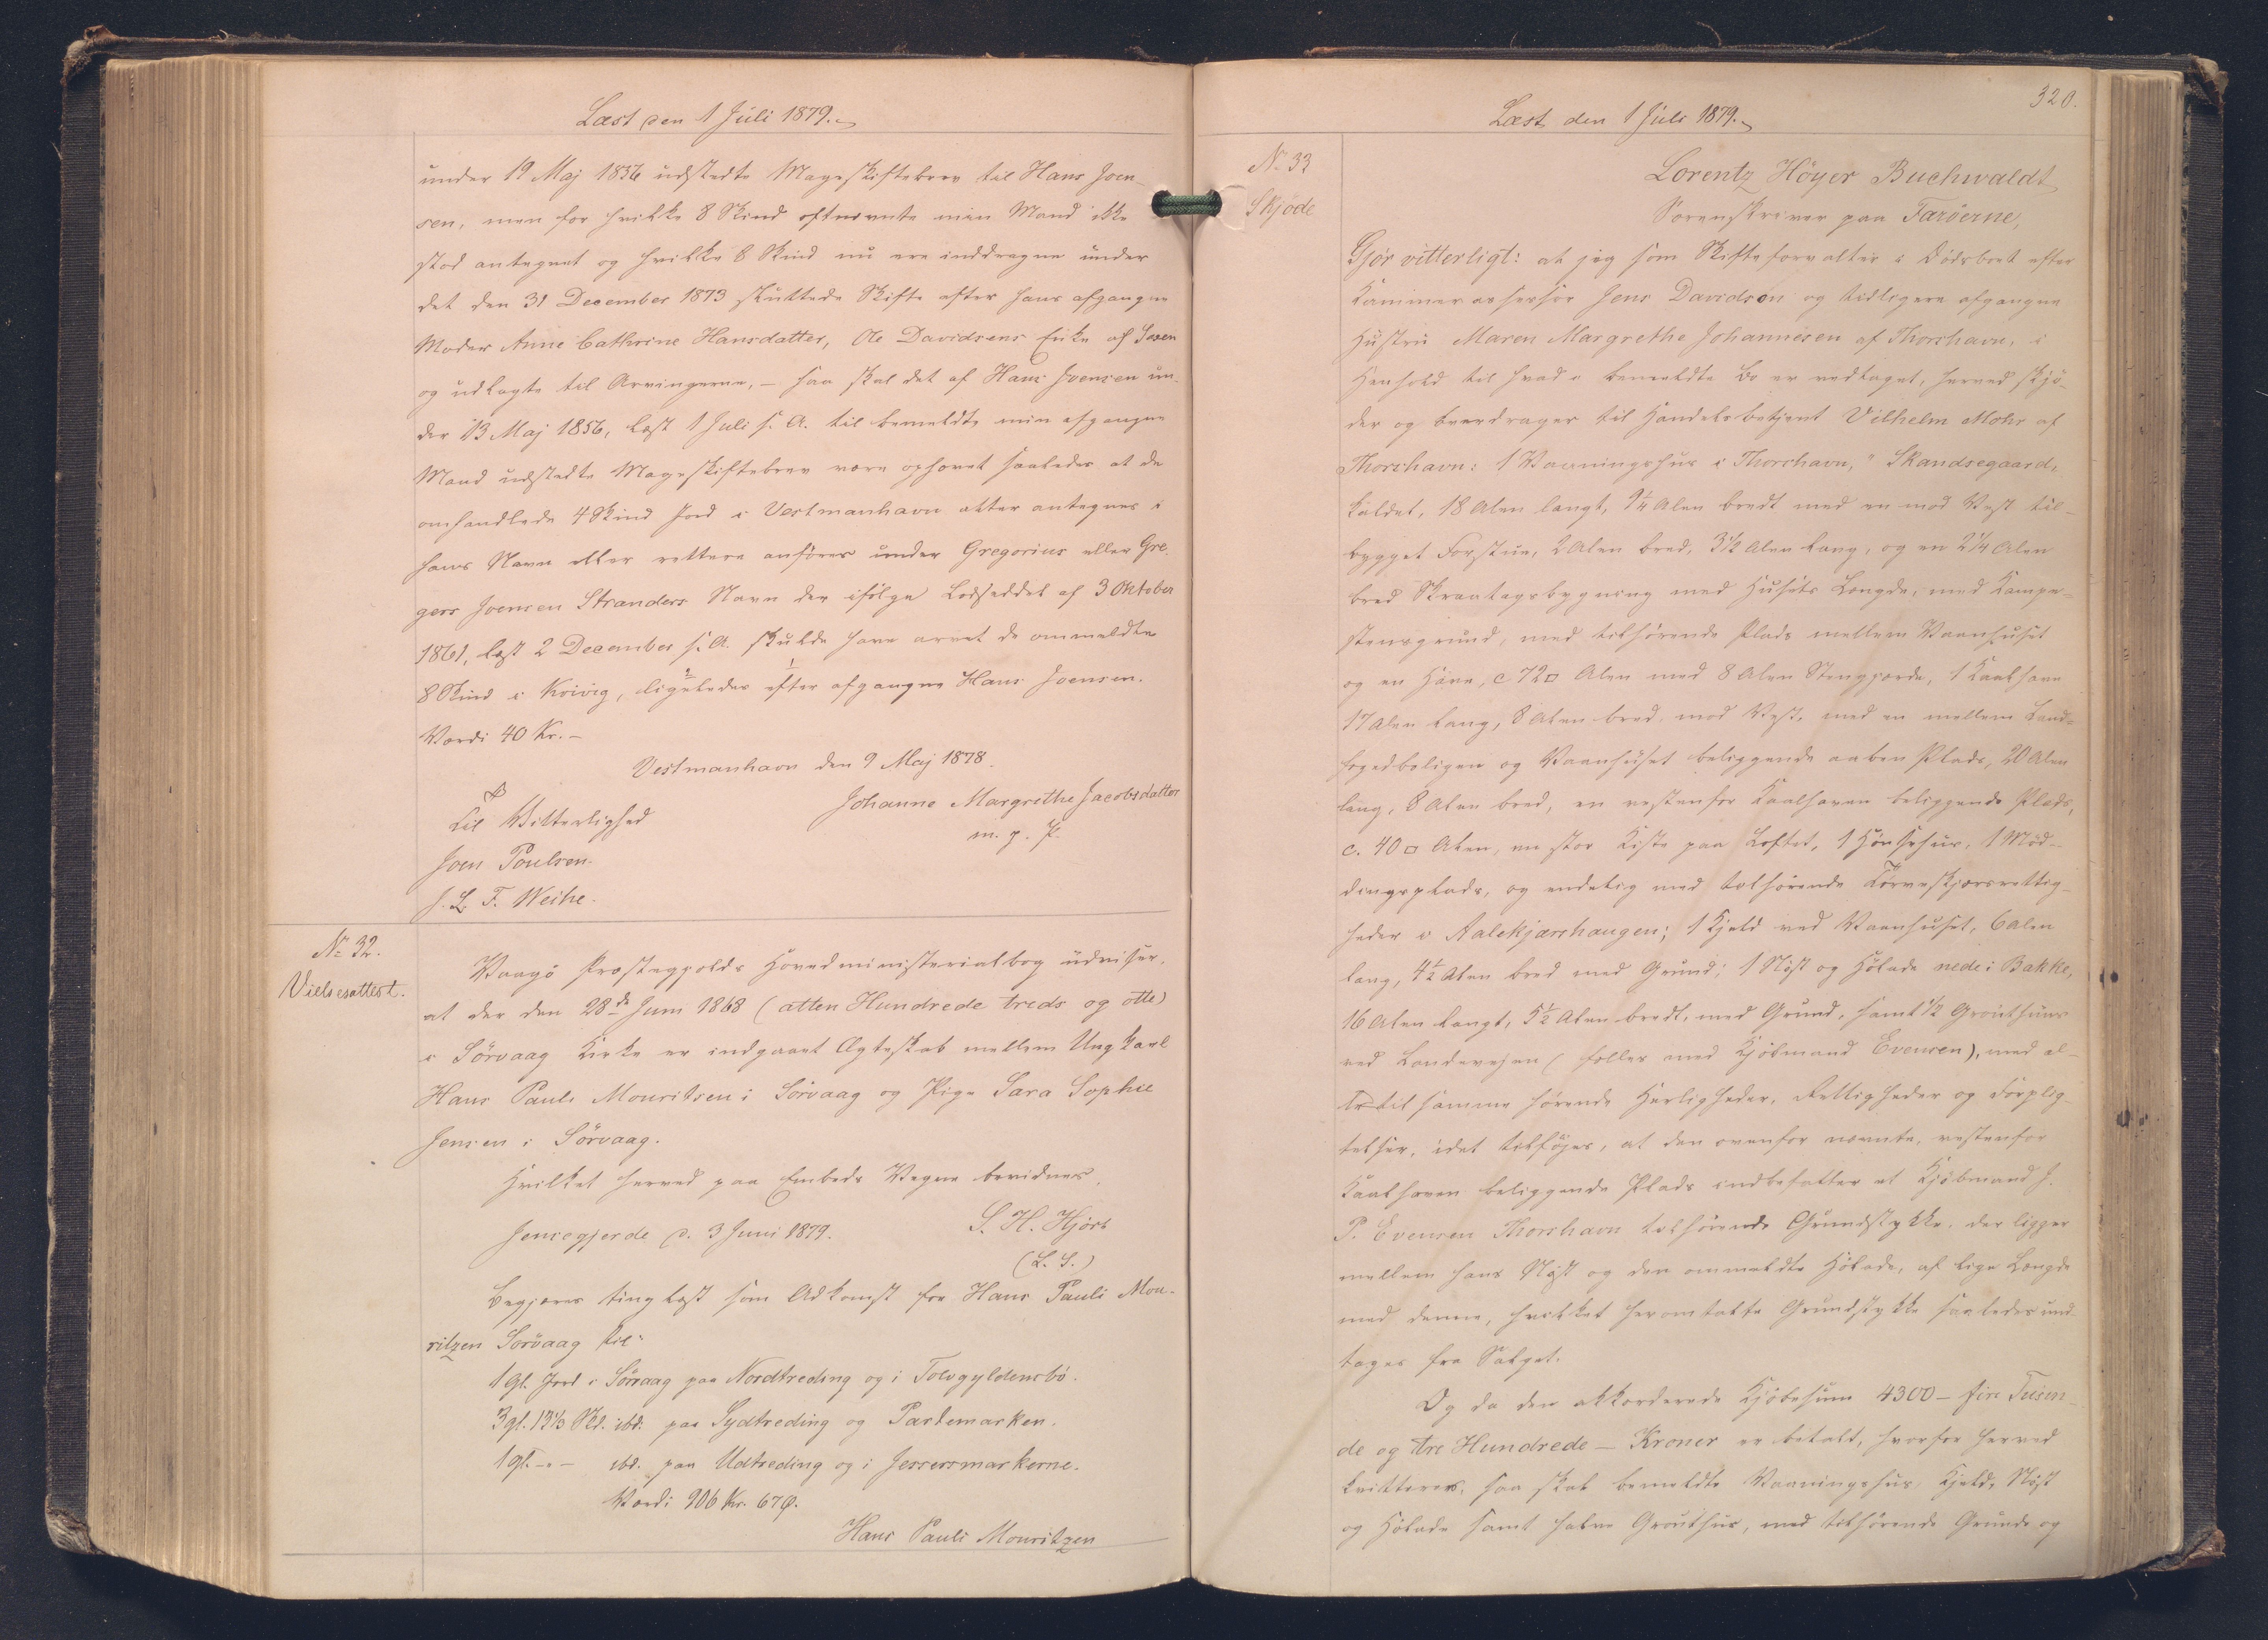 Læst den 1 Juli 1879.
under 19 Maj 1856 udstedte Mageskiftebrev til Hans Joen-
sen, men for hvilke 8 Skind oftnævnte min Mand ikke
stod antegnet og hvilke 8 Skind nu ere inddragne under
det den 31 December 1873 sluttede Skifte efter hans afgangne
Moder Anne Cathrine Hansdatter, Ole Davidsens Enke af
og udlagte til Arvingerne, – saa skal det af Hans Joensen un-
der 13 Maj 1856, læst 1 Juli s. A. til bemeldte min afgangne
Mand udstedte Mageskiftebrev være ophævet saaledes at de
omhandlede 4 Skind Jord i Vestmanhavn atter antegnes i
hans Navn eller rettere anføres under Gregorius eller Gre-
gers Joensen Stranders Navn der ifølge Lodseddel af 3 Oktober
1861, læst 2 December s. A. skulde have arvet de ommeldte
8 Skind i Kvivig, ligeledes efter afgangne Hans Joensen.
Værdi 40 Kr. –
Vestmanhavn den 9 Maj 1878.
Johanne Margrethe Jacobsdatter
m. p. P.
Til Vitterlighed
Joen Poulsen.
J. L. F. Weihe.
No 32.
Vielsesattest.
Vaagø Præstegjelds Hovedministerialbog udviser,
at der den 28de Juni 1868 (atten Hundrede treds og otte)
i Sörvaag Kirke er indgaaet Ægteskab mellem Ungkarl
Hans Pauli Mouritsen i Sörvaag og Pige Sara Sophie
Jensen i Sörvaag.
Hvilket herved paa Embeds Vegne bevidnes.
Jensegjerde d. 3 Juni 1879.
S. H. Hjort
(L. S.)
Begjæres tinglæst som Adkomst for Hans Pauli Mou-
ritzen Sorvaag til:
1 Gl. Jord i Sörvaag paa Nordtreding og i Tolvgyldensbö.
3 gl. 13 1/3 Skd. ibd. paa Sydtreding og Partemarken.
1 gl. – " – ibd. paa Udtreding og i Jessersmarkerne.
Værdi 906 Kr. 67 Ø.
Hans Pauli Mouritzen
320.
Læst den 1 Juli 1879.
No 33
Skjöde
Lorentz Höyer Buchwaldt
Sorenskriver paa Færöerne,
Gjör vitterligt: at jeg som Skifteforvalter i Dödsboet efter
Kammerassessor Jens Davidson og tidligere afgangne
Hustru Maren Margrethe Johannesen af Thorshavn, i
Henhold til hvad i bemeldte Bo er vedtaget, herved skjö-
der og overdrager til Handelsbetjent Vilhelm Mohr af
Thorshavn: 1 Vaaningshus i Thorshavn, " Skandsegaard,
kaldet, 18 Alen langt, 9 1/4 Alen bredt med en mod Vest til-
bygget Forstue, 2 Alen bred, 3 1/2 Alen lang, og en 2 1/4 Alen
bred Skraatagsbygning med Husets Længde, med Kampe-
stensgrund, med tilhörende Plads mellem Vaanhuset
og en Have, c 72 □ Alen med 8 Alen Stengjærde, 1 Kaalhave
17 Alen lang, 8 Alen bred, mod Vest, med en mellem Land-
fogedboligen og Vaanhuset beliggende aaben Plads, 20 Alen
lang, 8 Alen bred, en vestenfor Kaalhaven beliggende Plads,
c. 40 □ Alen, en stor Kiste paa Loftet, 1 Hönsehus, 1 Mød-
dingsplads, og endelig med tilhörende Törveskjærsrettig-
heder i Aalekjærshaugen; 1 Hjeld ved Vaanhuset, 6 Alen
lang, 4 1/2 Alen bred med Grund; 1 Nöst og Hölade nede i Bakke,
16 Alen langt, 5 1/2 Alen bredt, med Grund, samt 1/2 Grouthuus
ved Landevejen (fælles med Kjöbmand Evensen), med al-
til samme hörende Herligheder, Rettigheder og Forplig-
telser, idet tilföjes, at den ovenfor nævnte, vestenfor
Kaalhaven beliggende Plads indbefatter et Kjöbmand J.
P. Evensen Thorshavn tilhörende Grundstykke, der ligger
mellem hans Nöst og den ommeldte Hölade, af lige Længde
med denne, hvilket heromtalte Grundstykke saaledes und-
tages fra Salget.
Og da den akkorderede Kjöbesum 4300 – fire Tusin-
de og tre Hundrede – Kroner er betalt, hvorfor herved
kvitteres, saa skal bemeldte Vaaningshus, Hjeld, Nöst
og Hölade samt halve Grouthus, med tilhörende Grunde og